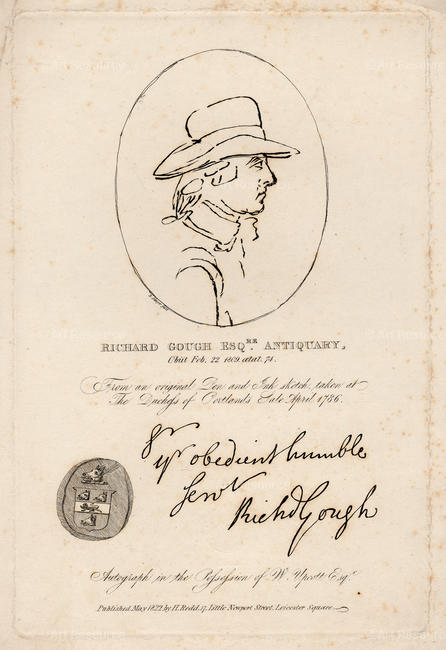 RICHARD GOUGH ESQRE. ANTIQUARY,
Obiit Feb. 22 1809 ætat. 74.
From an original Pen and Ink sketch, taken at
The Dutchess of Portlands Sale April 1786.
Sr
yr obedient humble
Servt
Richd Gough
Autograph in the Possession of W. Upcott Esqr.
Published May 1822 by H. Rodd. 17. Little Newport Street, Leicester Square.